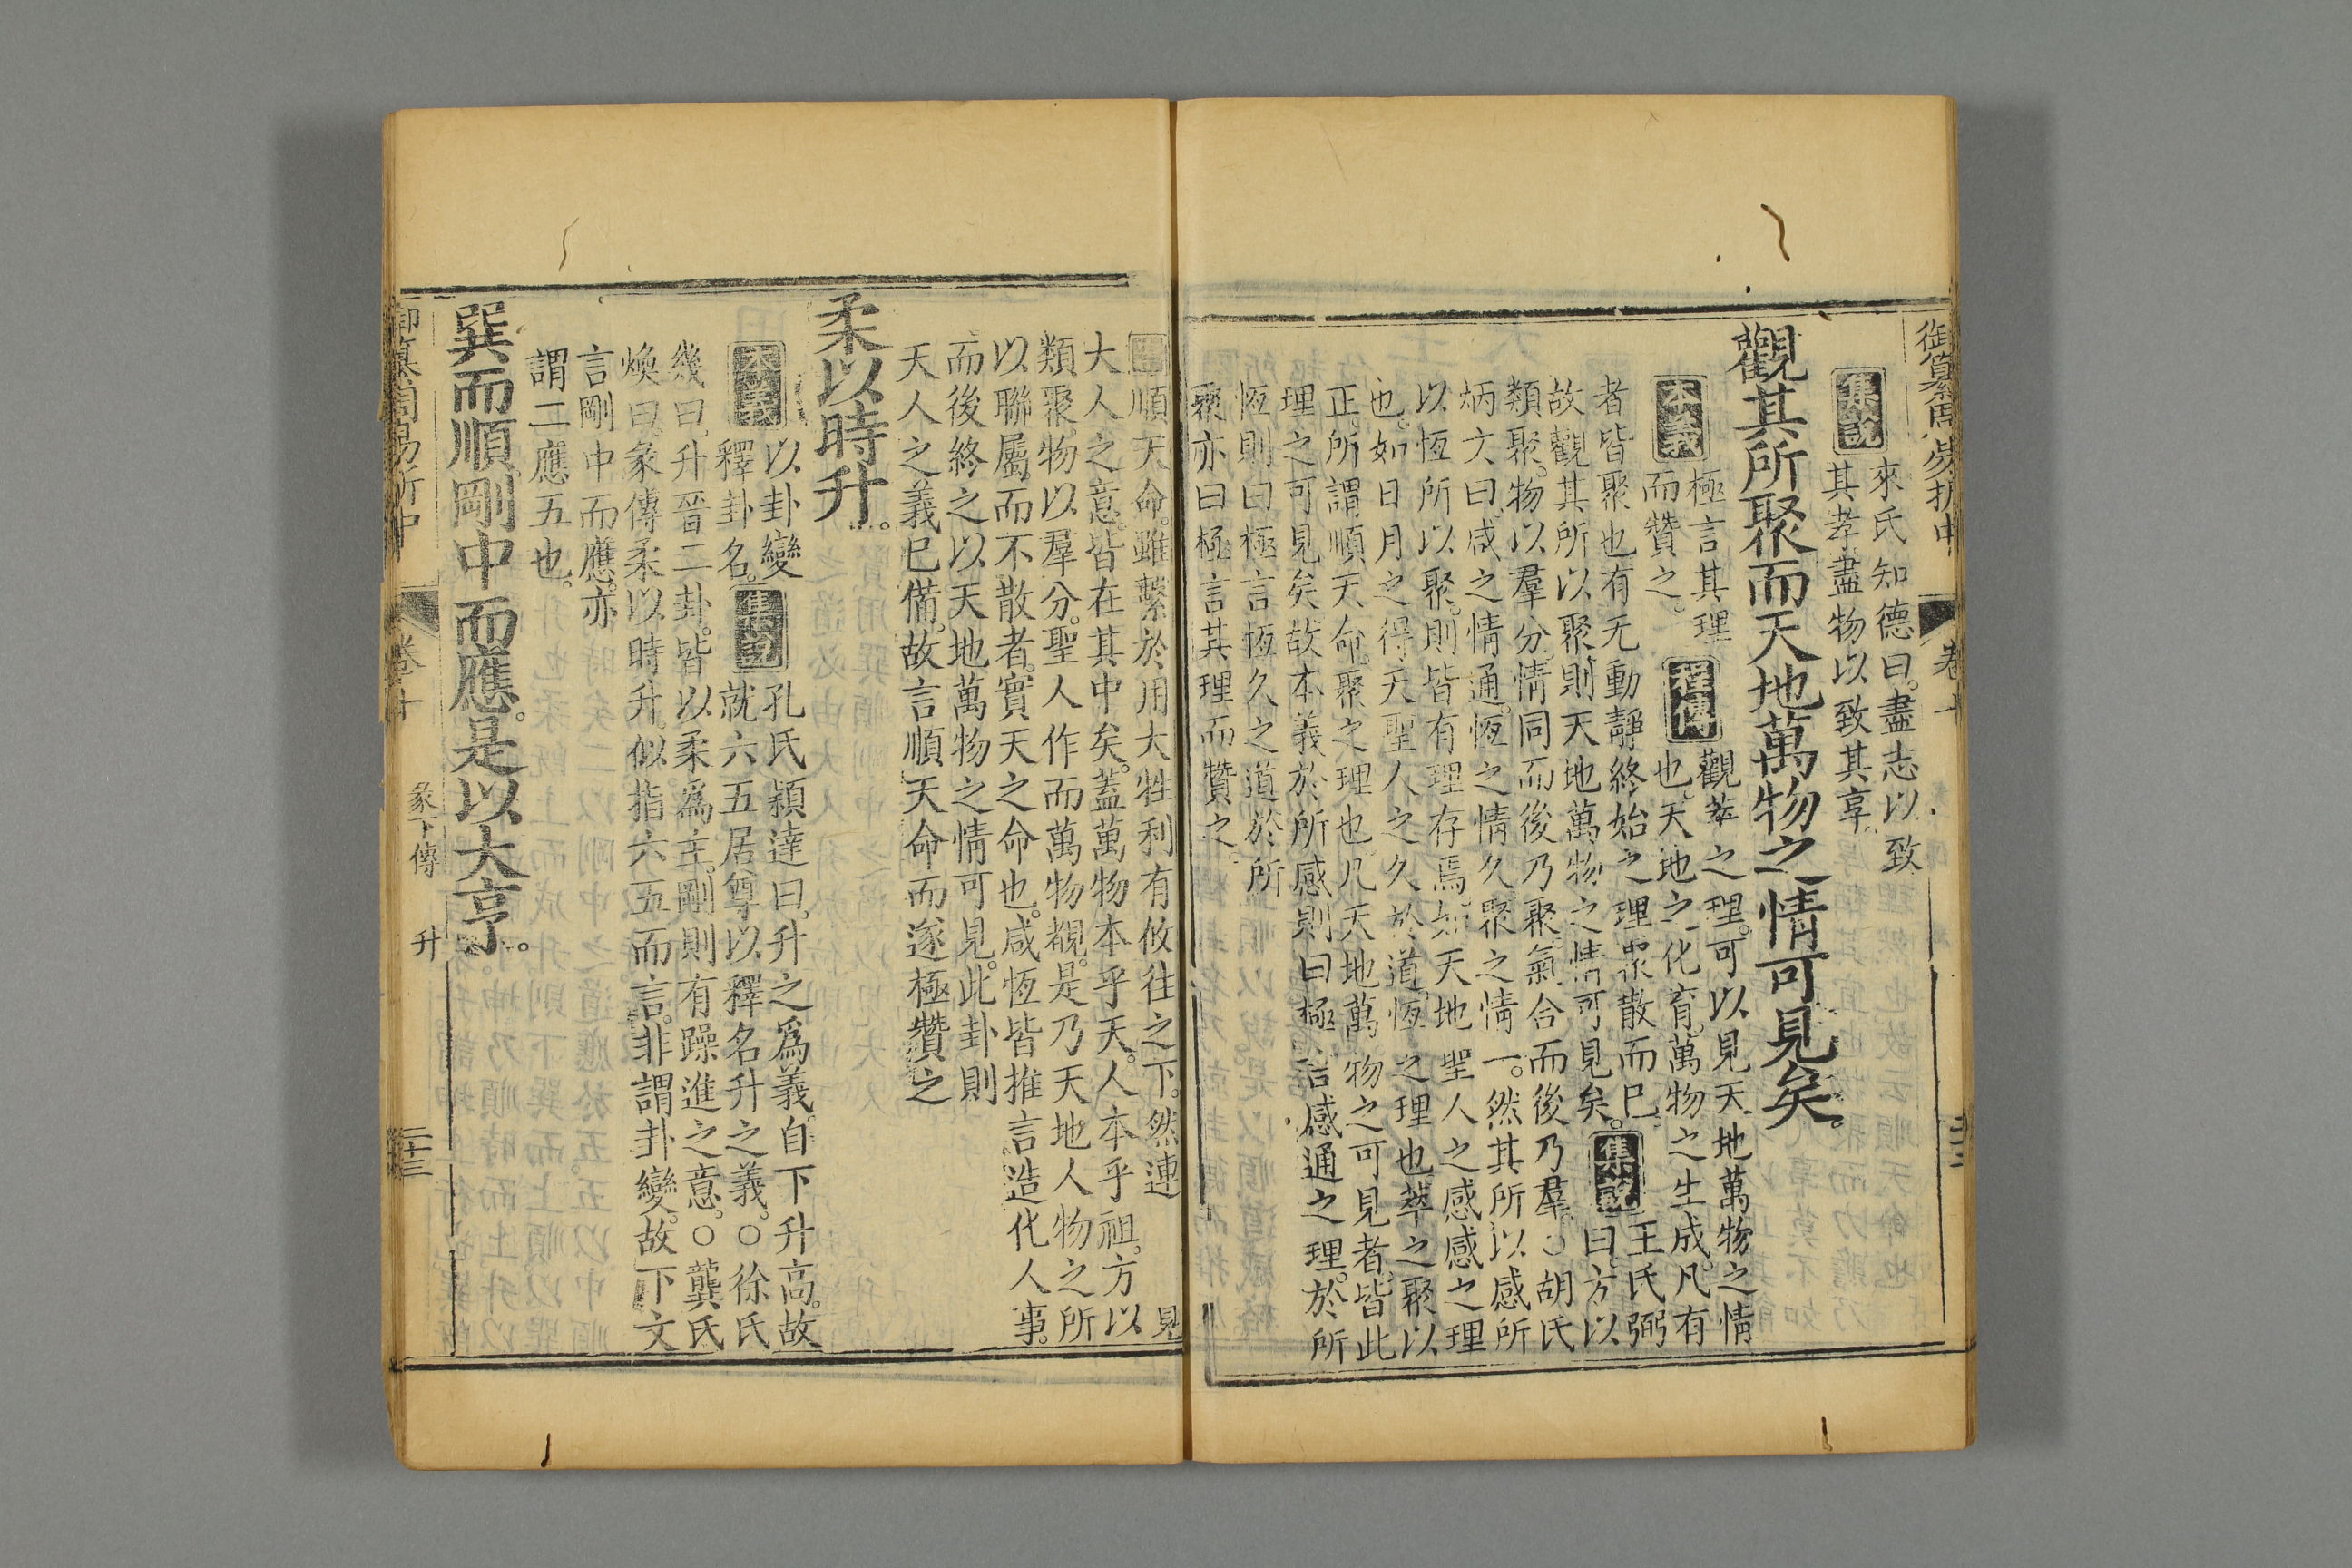 御纂周易折中
卷十
集說
來氏知德曰。盡志以致
其孝盡物以致其享。
觀其所聚而天地萬物之情可見矣。
本義
極言其理
而贊之。
程傳
觀萃之理。可以見天地萬物之情
也。天地之化育。萬物之生成。凡有
者皆聚也有无動靜終始之理聚散而已。
集說
王氏弼
曰方以
故觀其所以聚則天地萬物之情可見矣。
類聚。物以羣分。情同而後乃聚。氣合而後乃羣。○胡氏
炳文曰咸之情通。恆之情久聚之情一。然其所以感所
以恆所以聚。則皆有理存焉。如天地聖人之感感之理
也。如日月之得天聖人之久於道恆之理也萃之聚以
正。所謂順天命。聚之理也凡天地萬物之可見者。皆此
理之可見矣故本義於所感則曰極言感通之理。於所
恆則曰極言恆久之道於所
聚亦曰極言其理而贊之。
順天命。雖繫於用大牲利有攸往之下。然連見
大人之意。皆在其中矣。蓋萬物本乎天。人本乎祖。方以
類聚物以羣分。聖人作而萬物覩。是乃天地人物之所
以聯屬而不散者。實天之命也。咸恆皆推言造化人事。
而後終之以天地萬物之情可見。此卦則
天人之義已備。故言順天命而遂極贊之
柔以時升。
本義
以卦變
釋卦名。
集說
孔氏穎達曰。升之爲義。自下升高。故
就六五居尊以釋名升之義。○徐氏
幾曰。升晉二卦。皆以柔爲主。剛則有躁進之意。○龔氏
煥曰。彖傳柔以時升。似指六五而言。非謂卦變。故下文
言剛中而應。亦
謂二應五也。
巽而順剛中而應。是以大亨。
御纂周易折中
卷十
彖下傳
升
二十三